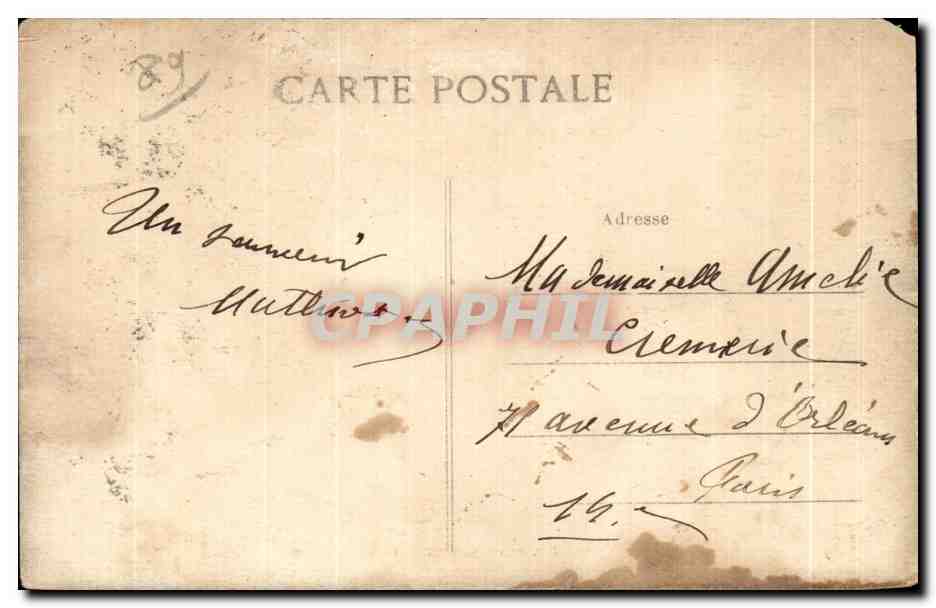 89
CARTE POSTALE
Un souvenir
Adresse
Mademoiselle Amelie
Cremerie
71 avenue d'Orléans
Paris
14.
CPAPHIL